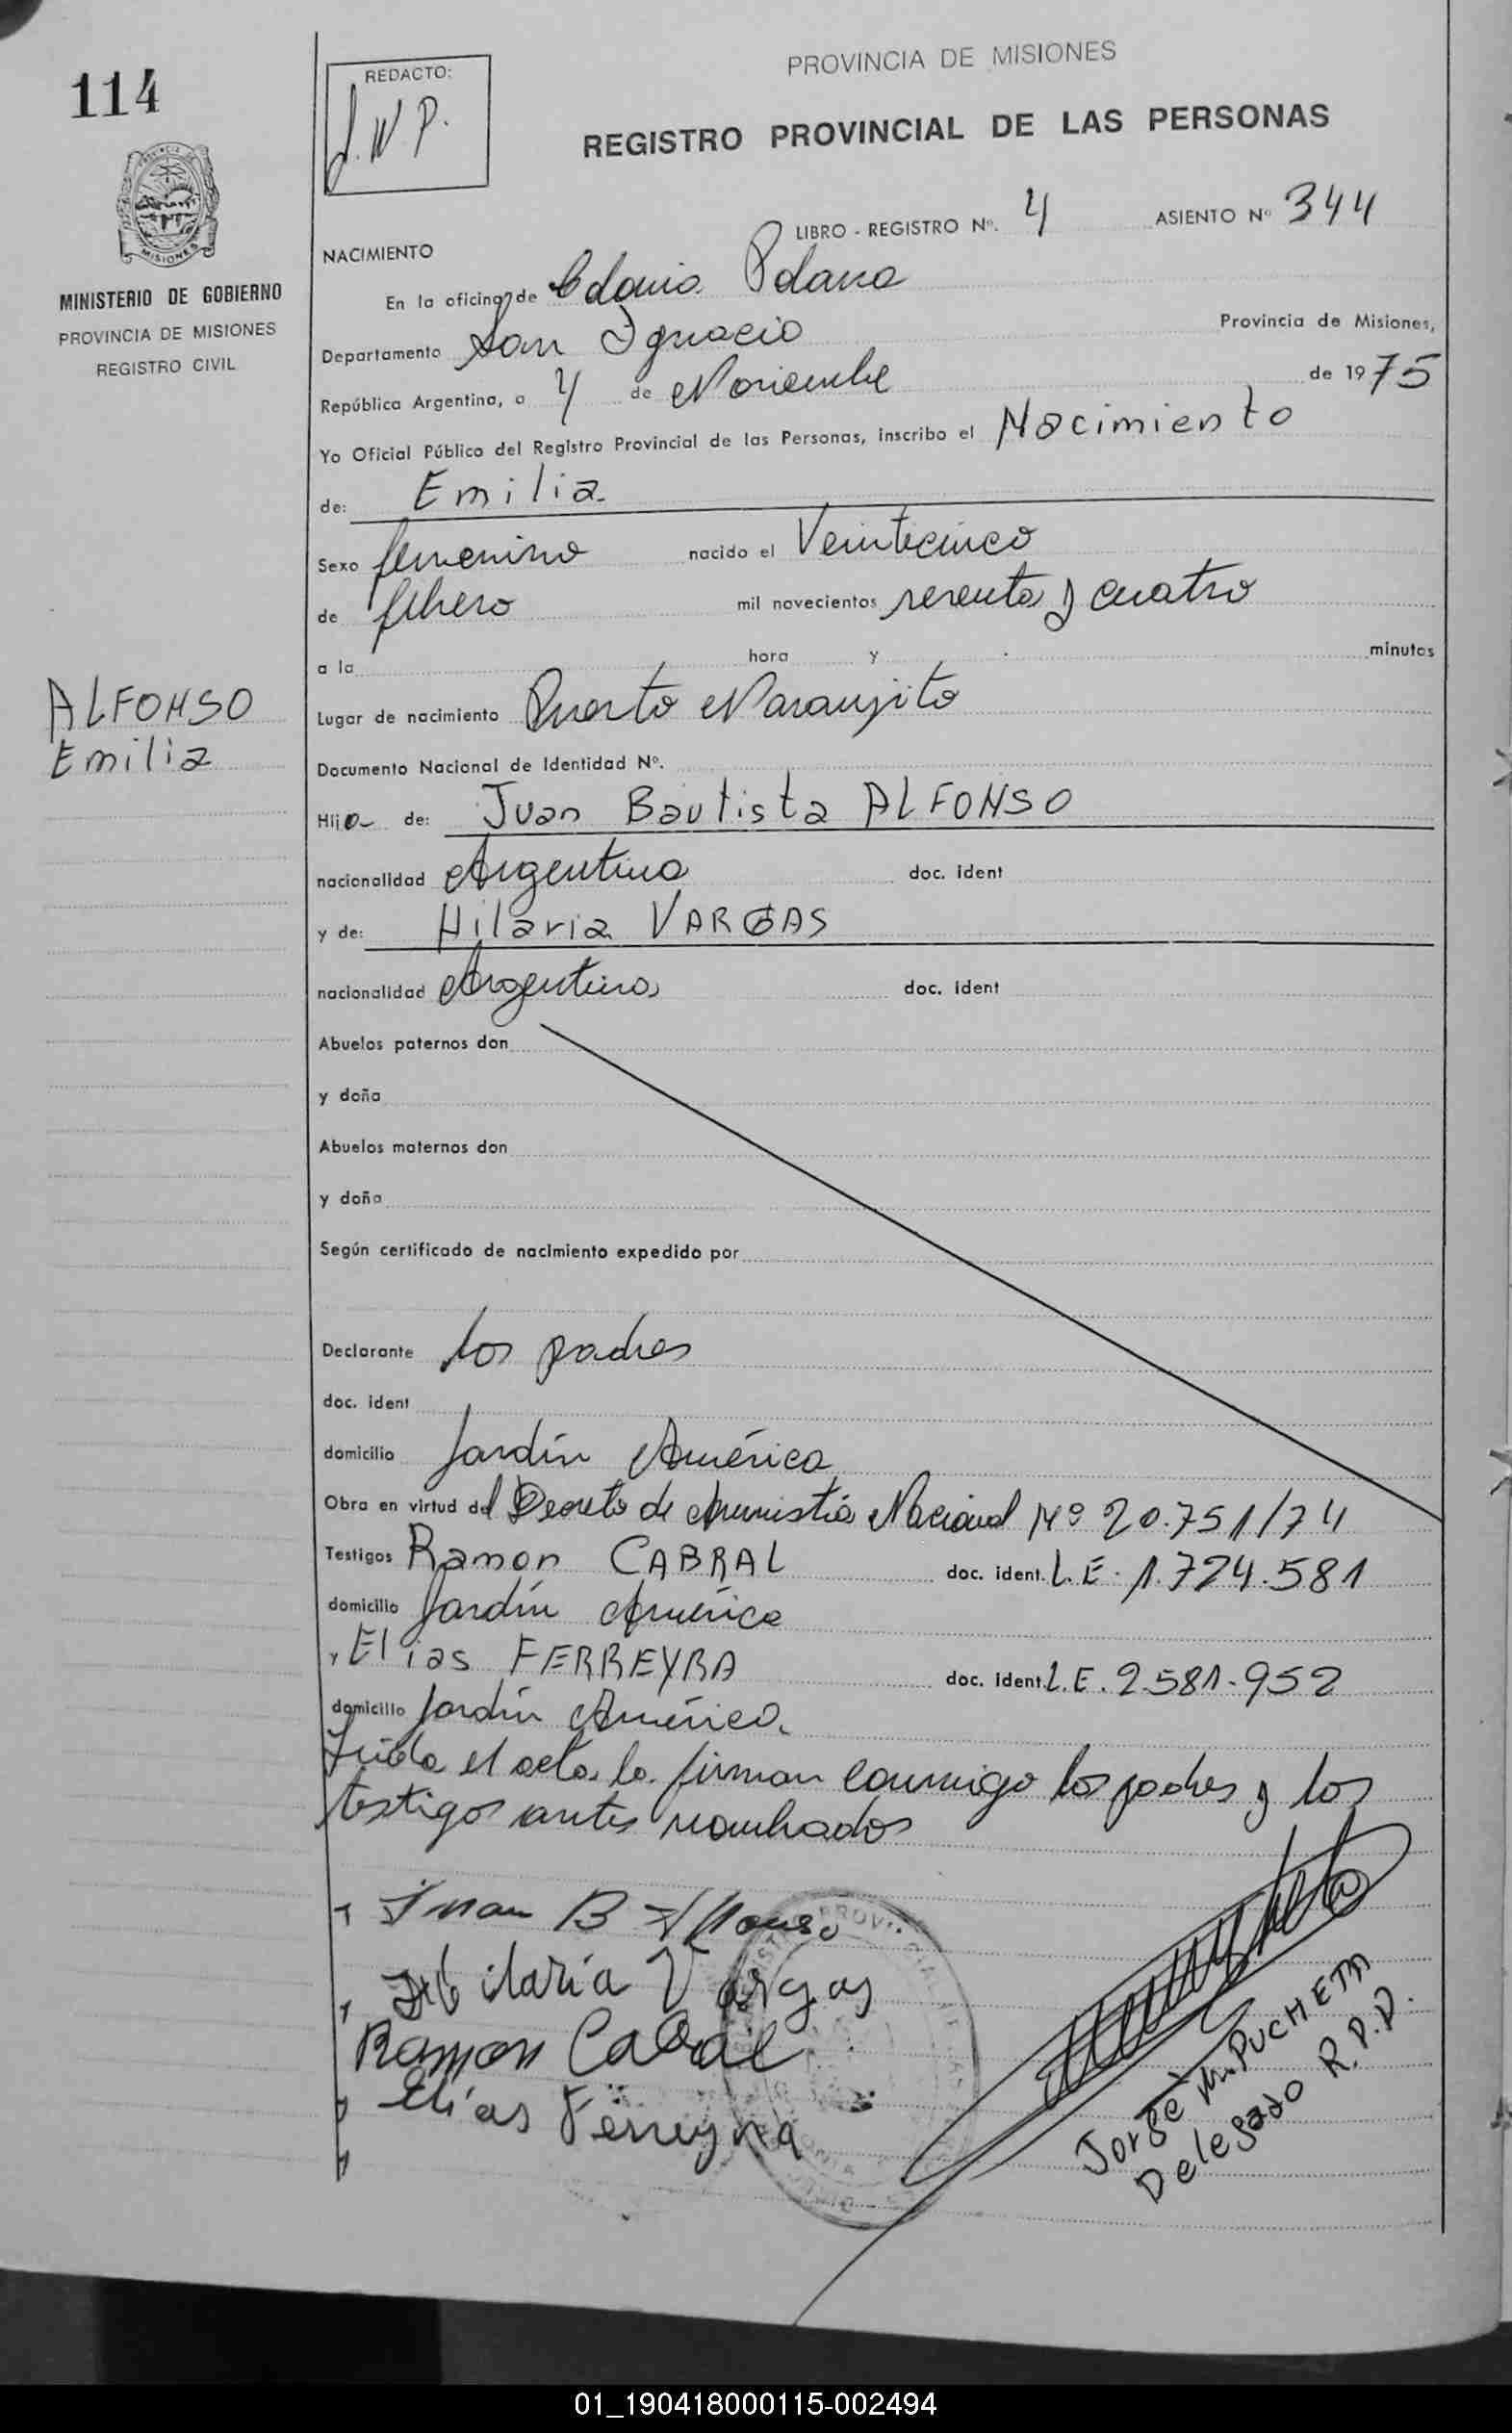 114
REDACTO:
J.W.P.
PROVINCIA DE MISIONES
REGISTRO PROVINCIAL DE LAS PERSONAS
MISIONES
MINISTERIO DE GOBIERNO
PROVINCIA DE MISIONES
REGISTRO CIVIL
LIBRO - REGISTRO Nº. 4 ASIENTO Nº 344
NACIMIENTO
En la oficina de Colonia Polana
Departamento San Ignacio Provincia de Misiones,
República Argentina, a 4 de Noviembre de 1975
Yo Oficial Público del Registro Provincial de las Personas, inscribo el Nacimiento
de: Emilia
Sexo femenino nacido el Veinticinco
de febrero mil novecientos setenta y cuatro
a la hora y minutos
ALFONSO
Emilia
Lugar de nacimiento Puerto Naranjito
Documento Nacional de Identidad Nº.
Hija de: Juan Bautista ALFONSO
nacionalidad Argentina doc. ident
y de: Hilaria VARGAS
nacionalidad Argentina doc. ident
Abuelos paternos don
y doña
Abuelos maternos don
y doña
Según certificado de nacimiento expedido por
Declarante los padres
doc. ident
domicilio Jardín América
Obra en virtud del Decreto de Amnistía Nacional Nº 20.751/74
Testigos Ramon CABRAL doc. ident. L.E. 1.724.581
domicilio Jardín América
y Elias FERREYRA doc. ident L.E. 2581.952
domicilio Jardín América.
Leída el acta, la firman conmigo los padres y los
testigos antes nombrados
Juan B Alfonso
Hilaria Vargas
Ramon Cabral
Elías Ferreyra
Jorge M. PUCHETA
Delegado R.P.P.
01_190418000115-002494